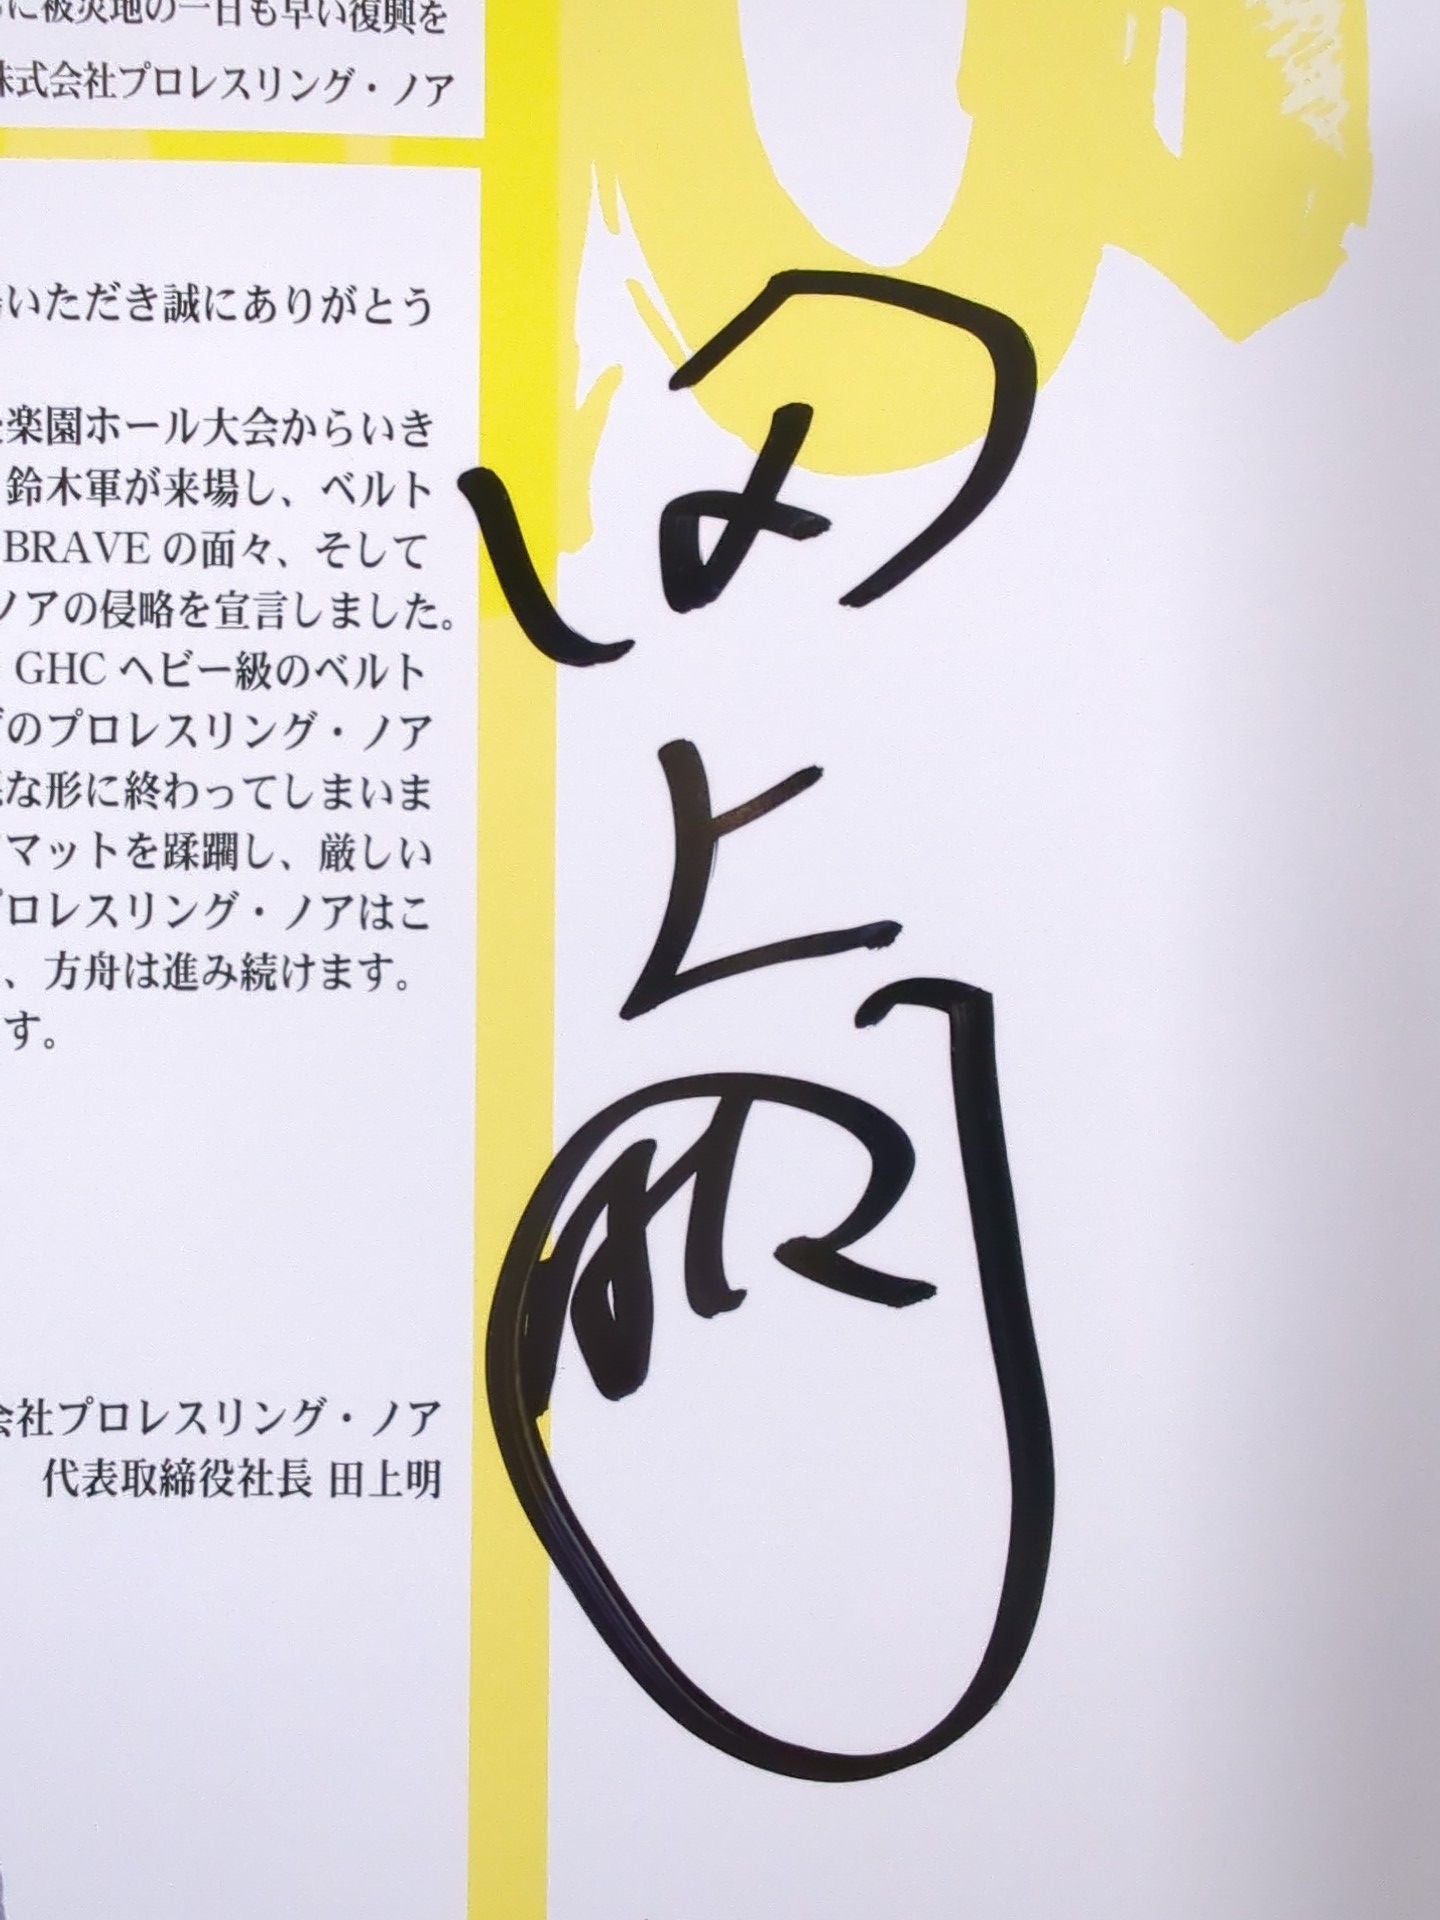 に被災地の一日も早い復興を
株式会社プロレスリング・ノア
いただき誠にありがとう
楽園ホール大会からいき
鈴木軍が来場し、ベルト
BRAVEの面々、そして
ノアの侵略を宣言しました。
GHCヘビー級のベルト
のプロレスリング・ノア
な形に終わってしまいま
マットを蹂躙し、厳しい
プロレスリング・ノアはこ
、方舟は進み続けます。
す。
会社プロレスリング・ノア
代表取締役社長 田上明
田上明